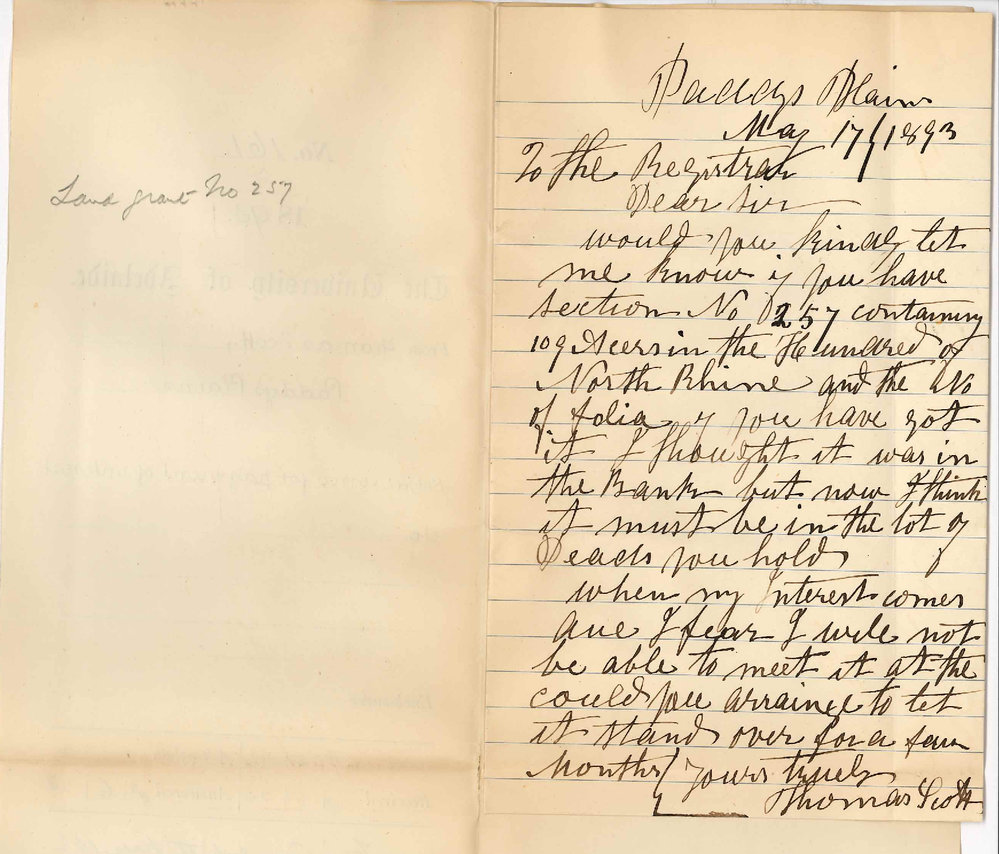 Land grant No 257
Paddys Plains
May 17/1893
To the Registrar
Dear Sir
would you kindly let
me know if you have
section No 257 containing
109 Acers in the Hundred of
North Rhine and the No
of folia if you have got
it I thought it was in
the Bank but now I think
it must be in the lot of
Deads you hold
when my Interest comes
due I fear I will not
be able to meet it at the
could you arrainge to let
it stand over for a few
Months/ yours truly
Thomas Scott